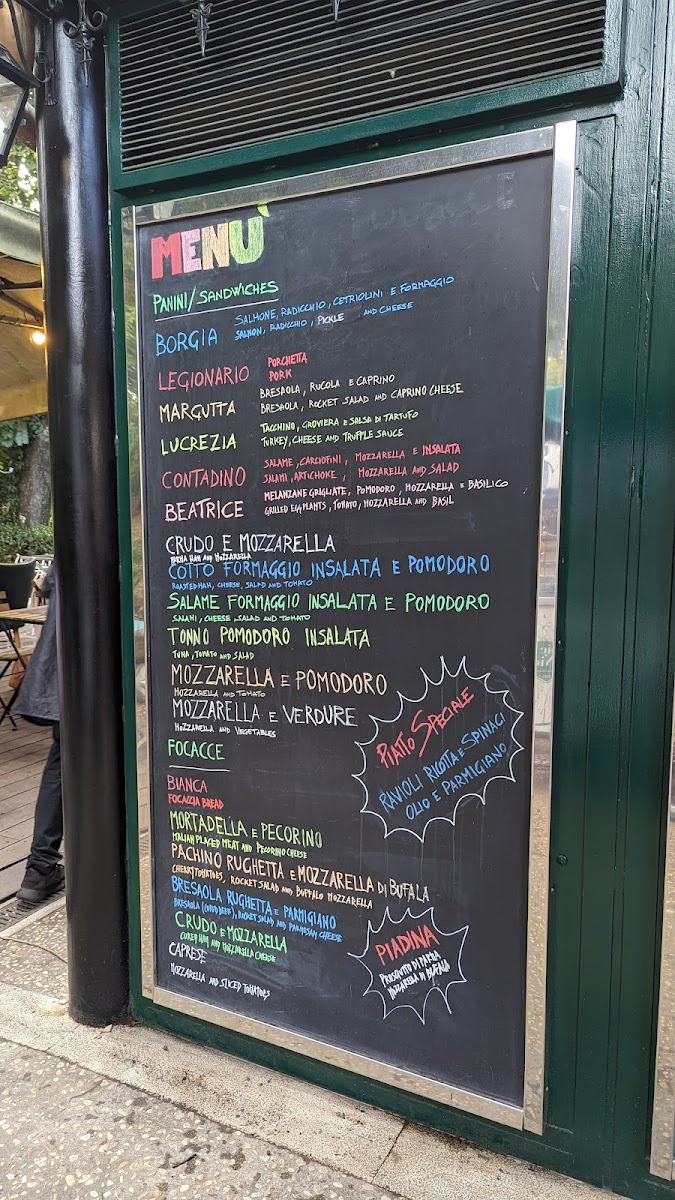 MENU'
PANINI/SANDWICHES
BORGIA
SALMONE, RADICCHIO, CETRIOLINI E FORMAGGIO
SALMON, RADICCHIO, PICKLE AND CHEESE
LEGIONARIO
PORCHETTA
PORK
MARGUTTA
BRESAOLA, RUCOLA E CAPRINO
BRESAOLA, ROCKET SALAD AND CAPRINO CHEESE
LUCREZIA
TACCHINO, GROVIERA E SALSA DI TARTUFO
TURKEY, CHEESE AND TRUFFLE SAUCE
CONTADINO
SALAME, CARCIOFINI, MOZZARELLA E INSALATA
SALAMI, ARTICHOKE, MOZZARELLA AND SALAD
BEATRICE
MELANZANE GRIGLIATE, POMODORO, MOZZARELLA E BASILICO
GRILLED EGGPLANTS, TOMATO, MOZZARELLA AND BASIL
CRUDO E MOZZARELLA
PARMA HAM AND MOZZARELLA
COTTO FORMAGGIO INSALATA E POMODORO
ROASTED HAM, CHEESE, SALAD AND TOMATO
SALAME FORMAGGIO INSALATA E POMODORO
SALAMI, CHEESE, SALAD AND TOMATO
TONNO POMODORO INSALATA
TUNA, TOMATO AND SALAD
MOZZARELLA E POMODORO
MOZZARELLA AND TOMATO
MOZZARELLA E VERDURE
MOZZARELLA AND VEGETABLES
PIATTO SPECIALE
RAVIOLI RICOTTA E SPINACI
OLIO E PARMIGIANO
FOCACCE
BIANCA
FOCACCIA BREAD
MORTADELLA E PECORINO
ITALIAN PLACED MEAT AND PECORINO CHEESE
PACHINO RUGHETTA E MOZZARELLA DI BUFALA
CHERRY TOMATOES, ROCKET SALAD AND BUFFALO MOZZARELLA
BRESAOLA RUGHETTA E PARMIGIANO
BRESAOLA (CURED BEEF), ROCKET SALAD AND PARMESAN CHEESE
CRUDO E MOZZARELLA
CURED HAM AND MOZZARELLA CHEESE
CAPRESE
MOZZARELLA AND SLICED TOMATOES
PIADINA
PROSCIUTTO DI PARMA
MOZZARELLA DI BUFALA